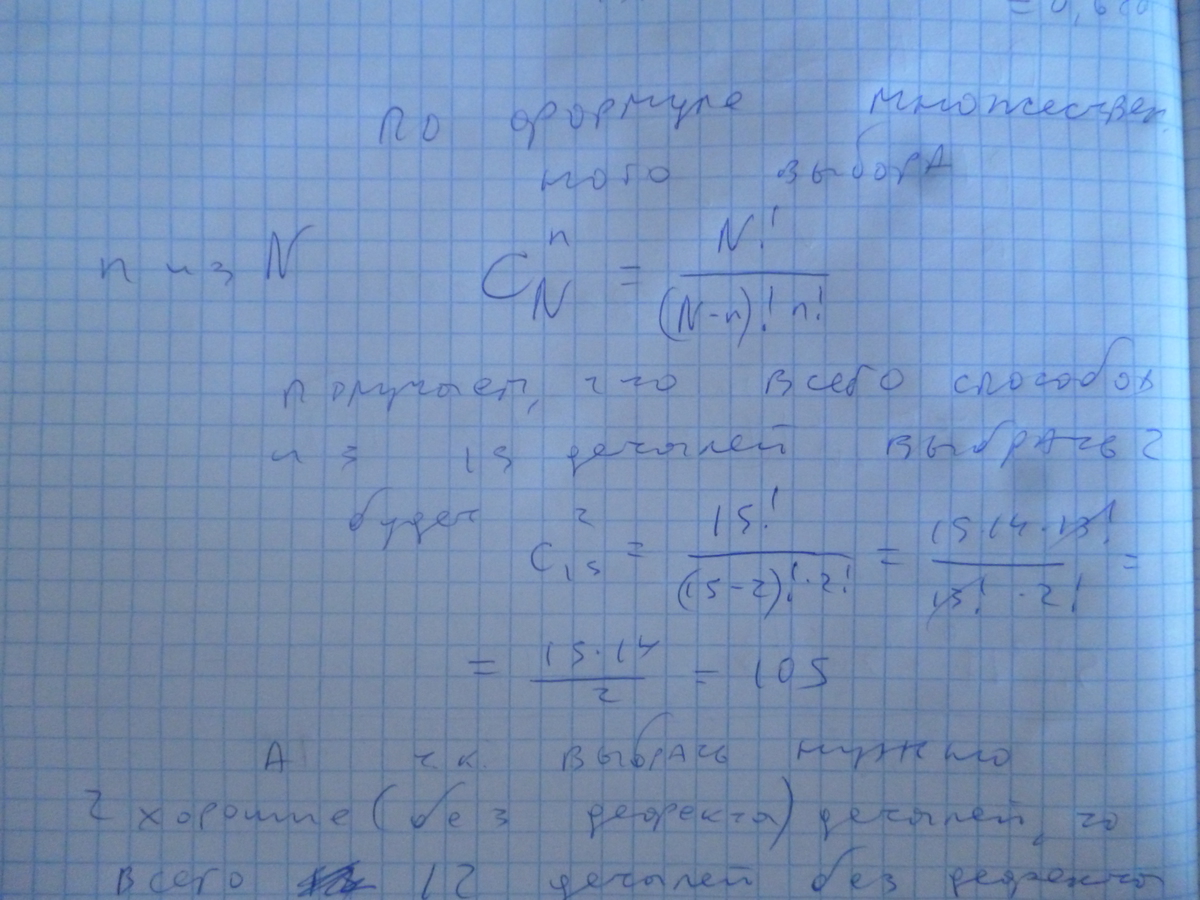 = 0,6
по формуле множествен
ного выбора
n из N C_N^n = N! / (N-n)! n!
получает, что всего способов
из 15 деталей выбрать 2
будет C_15^2 = 15! / (15-2)!·2! = 15·14·13! / 13!·2! =
= 15·14 / 2 = 105
А т.к. выбрать нужно
2 хорошие (без дефекта) деталей, то
всего 12 деталей без дефекта